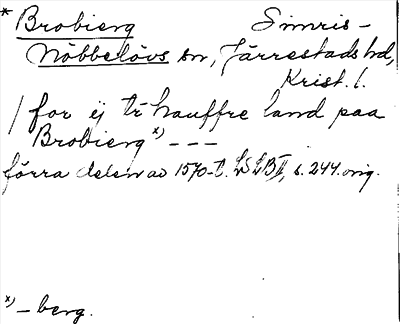 * Brobierg Simris-
Nöbbelövs sn, Järrestads hd,
Krist. l.
/ for ej tr hauffre land paa
Brobierg x) - - -
förra delen av 1570-t. LSLB II, s. 244. orig.
x) - berg.